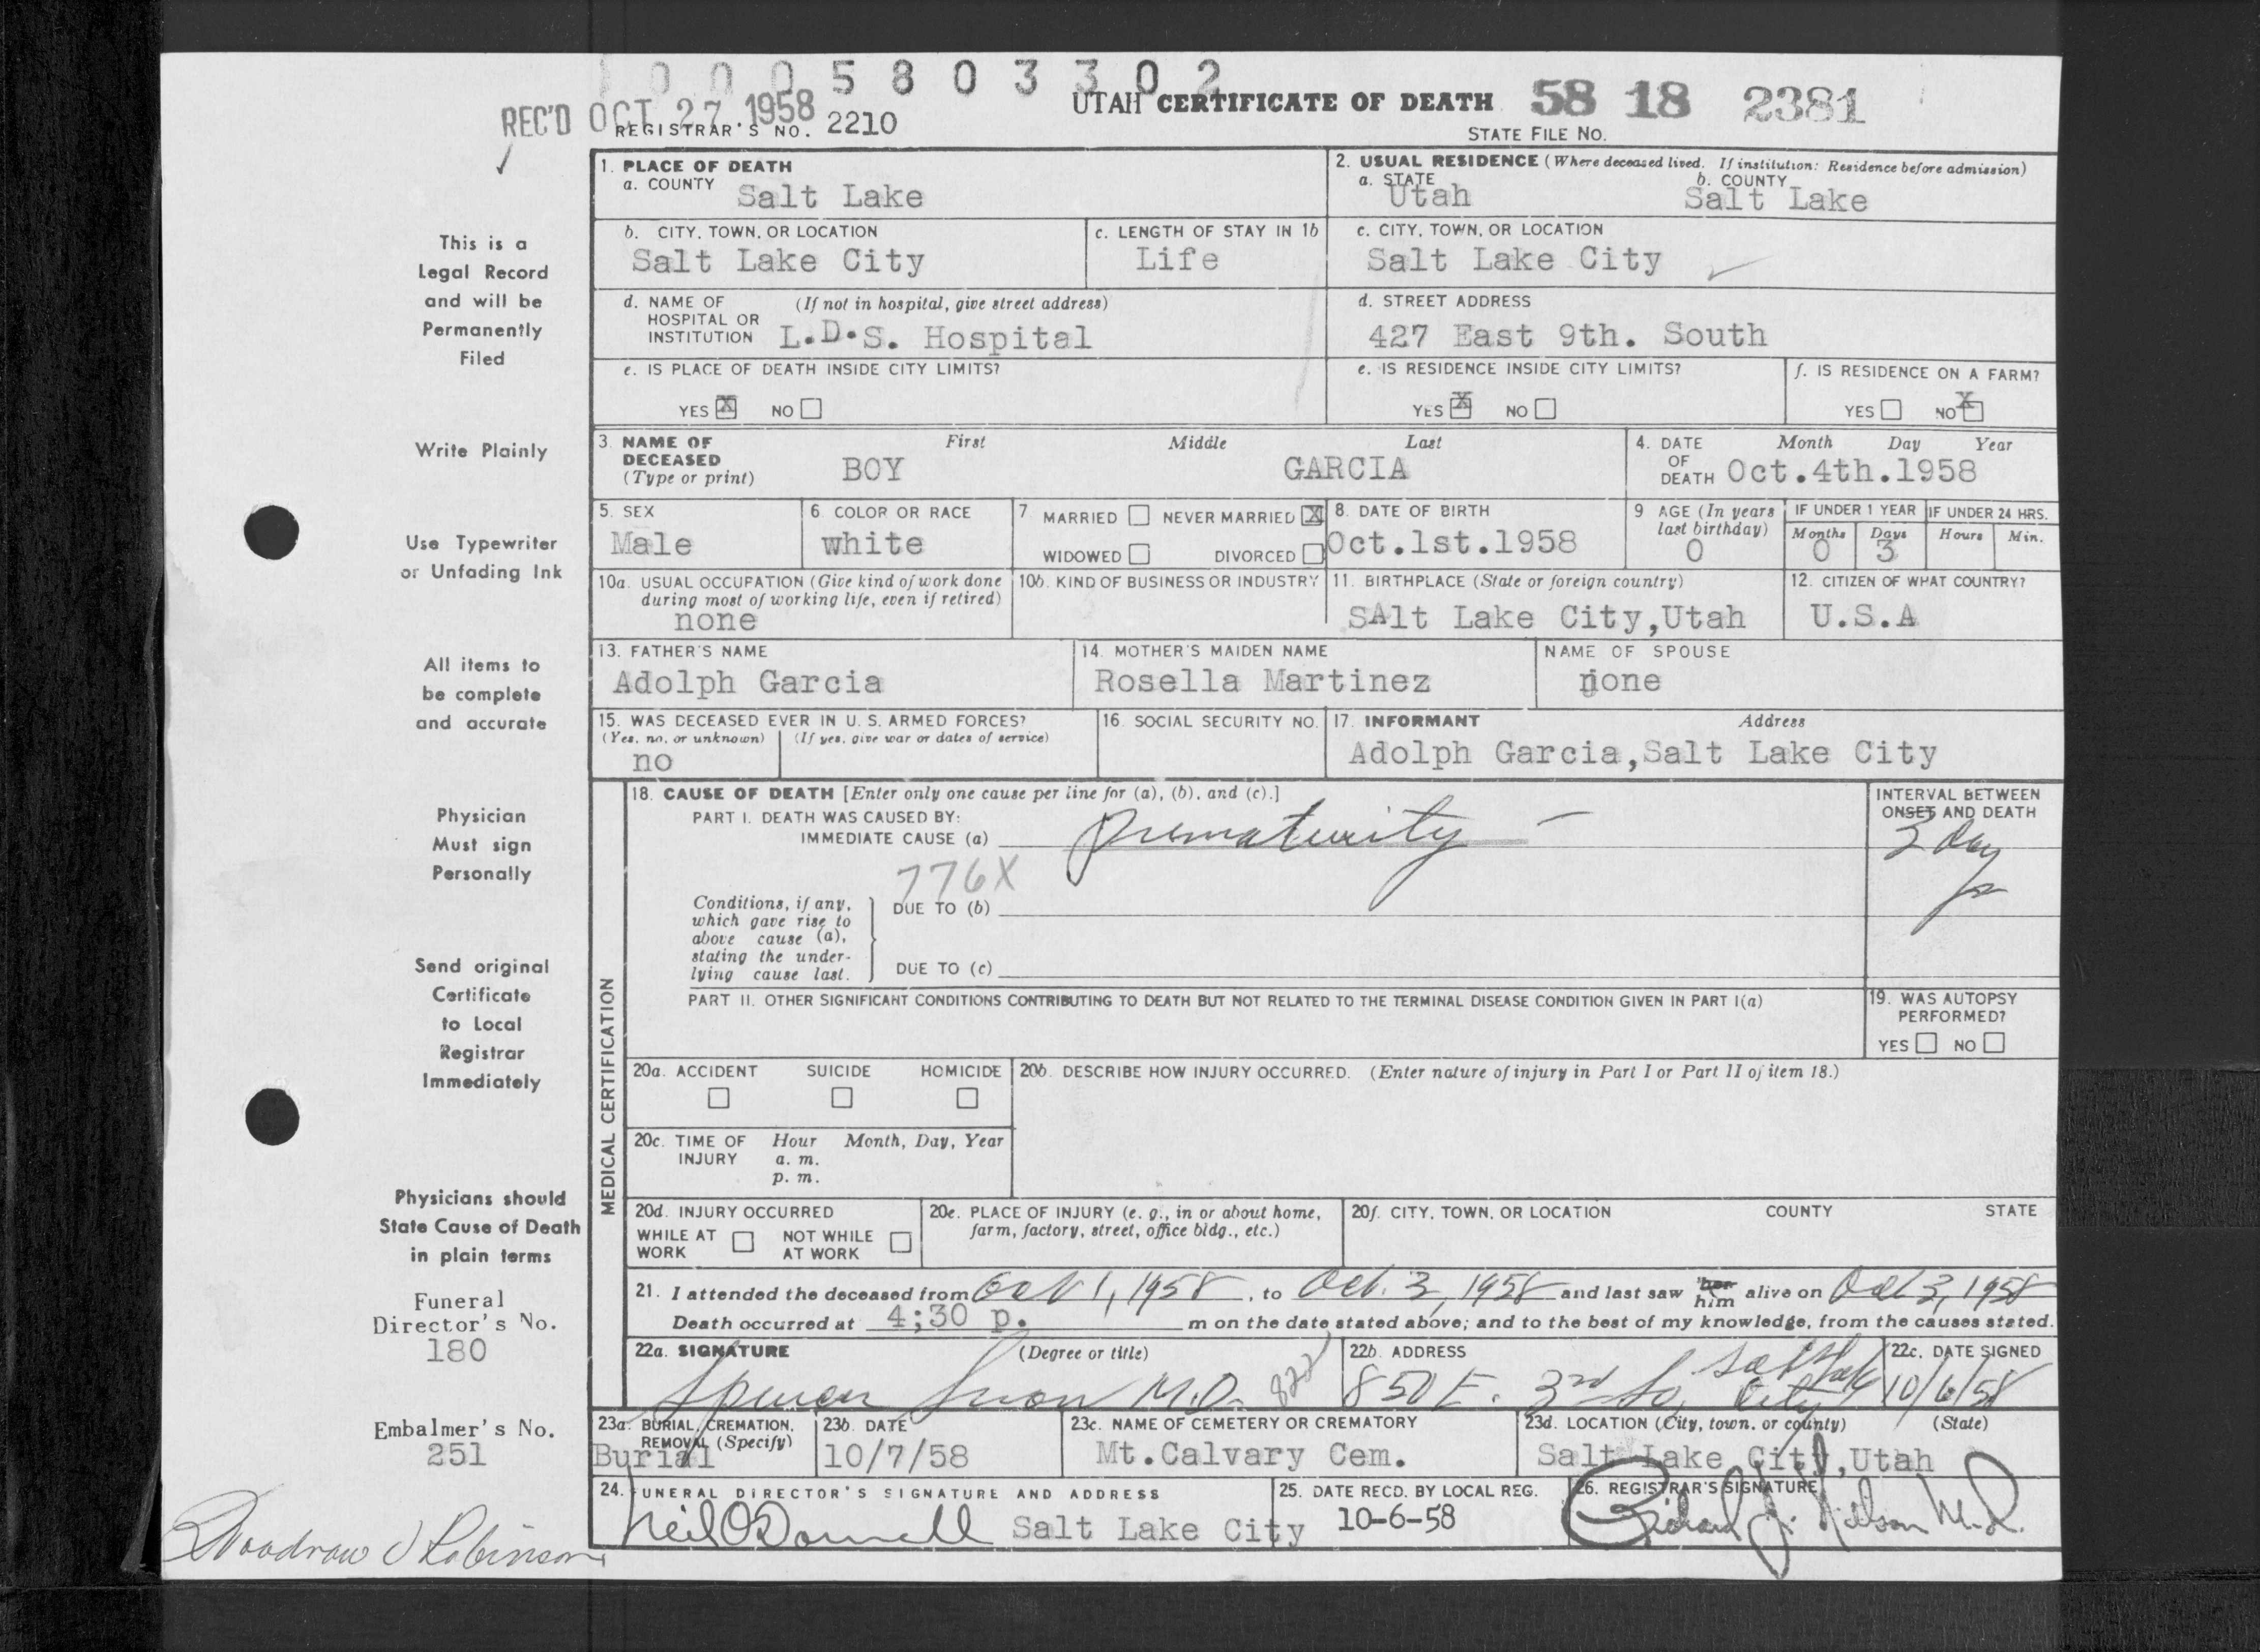 0 0 0 5 8 0 3 3 0 2
REC'D OCT 27 1958
REGISTRAR'S NO. 2210
UTAH CERTIFICATE OF DEATH 58 18 2381
STATE FILE NO.
This is a
Legal Record
and will be
Permanently
Filed
Write Plainly
Use Typewriter
or Unfading Ink
All items to
be complete
and accurate
Physician
Must sign
Personally
Send original
Certificate
to Local
Registrar
Immediately
Physicians should
State Cause of Death
in plain terms
Funeral
Director's No.
180
Embalmer's No.
251
Woodrow J Robinson
1. PLACE OF DEATH
a. COUNTY Salt Lake
2. USUAL RESIDENCE (Where deceased lived. If institution: Residence before admission)
a. STATE Utah b. COUNTY Salt Lake
b. CITY, TOWN, OR LOCATION
Salt Lake City
c. LENGTH OF STAY IN 1b
Life
c. CITY, TOWN, OR LOCATION
Salt Lake City
d. NAME OF HOSPITAL OR INSTITUTION (If not in hospital, give street address)
L.D.S. Hospital
d. STREET ADDRESS
427 East 9th. South
e. IS PLACE OF DEATH INSIDE CITY LIMITS?
YES X NO
e. IS RESIDENCE INSIDE CITY LIMITS?
YES X NO
f. IS RESIDENCE ON A FARM?
YES NO X
3. NAME OF DECEASED (Type or print)
First Middle Last
BOY GARCIA
4. DATE OF DEATH Month Day Year
Oct.4th.1958
5. SEX
Male
6. COLOR OR RACE
white
7. MARRIED NEVER MARRIED X
WIDOWED DIVORCED
8. DATE OF BIRTH
Oct.1st.1958
9 AGE (In years last birthday)
0
IF UNDER 1 YEAR
Months Days
0 3
IF UNDER 24 HRS.
Hours Min.
10a. USUAL OCCUPATION (Give kind of work done during most of working life, even if retired)
none
10b. KIND OF BUSINESS OR INDUSTRY
11. BIRTHPLACE (State or foreign country)
SAlt Lake City,Utah
12. CITIZEN OF WHAT COUNTRY?
U.S.A
13. FATHER'S NAME
Adolph Garcia
14. MOTHER'S MAIDEN NAME
Rosella Martinez
NAME OF SPOUSE
none
15. WAS DECEASED EVER IN U. S. ARMED FORCES?
(Yes, no, or unknown) (If yes, give war or dates of service)
no
16. SOCIAL SECURITY NO.
17. INFORMANT Address
Adolph Garcia,Salt Lake City
MEDICAL CERTIFICATION
18. CAUSE OF DEATH [Enter only one cause per line for (a), (b), and (c).]
PART I. DEATH WAS CAUSED BY:
IMMEDIATE CAUSE (a) prematurity -
INTERVAL BETWEEN
ONSET AND DEATH
3 day
776X
Conditions, if any,
which gave rise to
above cause (a),
stating the under-
lying cause last.
DUE TO (b)
DUE TO (c)
PART II. OTHER SIGNIFICANT CONDITIONS CONTRIBUTING TO DEATH BUT NOT RELATED TO THE TERMINAL DISEASE CONDITION GIVEN IN PART I(a)
19. WAS AUTOPSY PERFORMED?
YES NO
20a. ACCIDENT SUICIDE HOMICIDE
20b. DESCRIBE HOW INJURY OCCURRED. (Enter nature of injury in Part I or Part II of item 18.)
20c. TIME OF INJURY Hour Month, Day, Year
a. m.
p. m.
20d. INJURY OCCURRED
WHILE AT WORK NOT WHILE AT WORK
20e. PLACE OF INJURY (e. g., in or about home, farm, factory, street, office bldg., etc.)
20f. CITY, TOWN, OR LOCATION COUNTY STATE
21. I attended the deceased from Oct 1, 1958, to Oct. 3, 1958 and last saw her him alive on Oct 3, 1958
Death occurred at 4;30 p. m on the date stated above; and to the best of my knowledge, from the causes stated.
22a. SIGNATURE (Degree or title)
Spencer Snow M.D. 822
22b. ADDRESS
850 E. 3rd So, Salt Lake City
22c. DATE SIGNED
10/6/58
23a. BURIAL, CREMATION, REMOVAL (Specify)
Burial
23b. DATE
10/7/58
23c. NAME OF CEMETERY OR CREMATORY
Mt.Calvary Cem.
23d. LOCATION (City, town, or county) (State)
Salt Lake City,Utah
24. FUNERAL DIRECTOR'S SIGNATURE AND ADDRESS
Neil O'Donnell Salt Lake City
25. DATE RECD. BY LOCAL REG.
10-6-58
26. REGISTRAR'S SIGNATURE
Richard J. Nelson M.D.